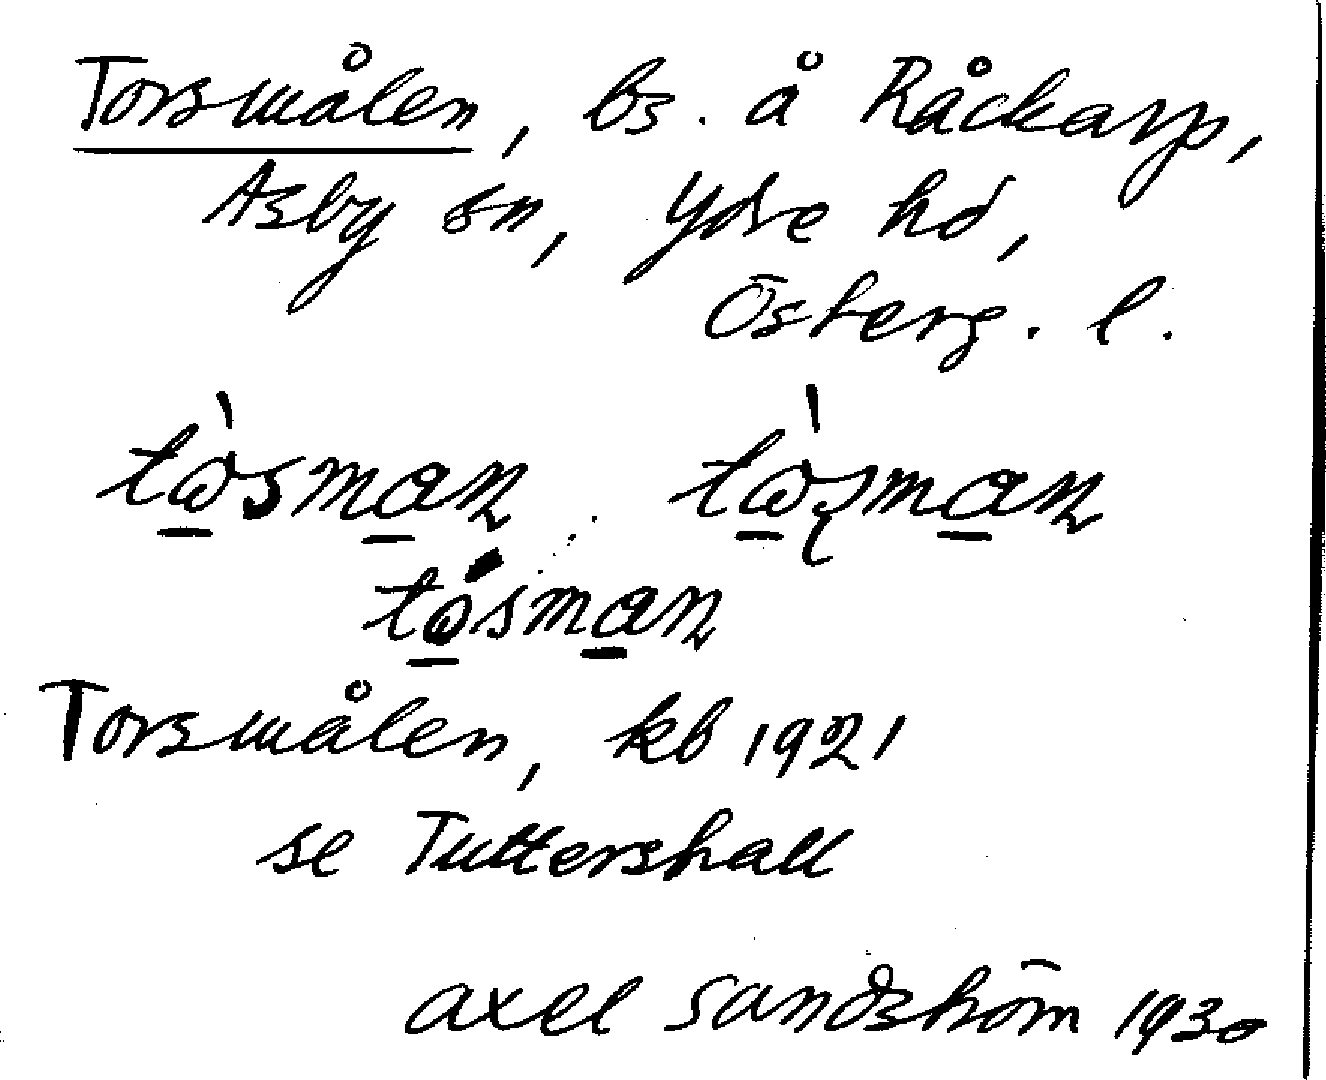 Torsmålen, bs. å Råckarp,
Asby sn, Ydre hd,
Österg. l.
tὼsman tὼʂman
tώsman
Torsmålen, kb 1921
se Tuttershall
axel sandström 1930